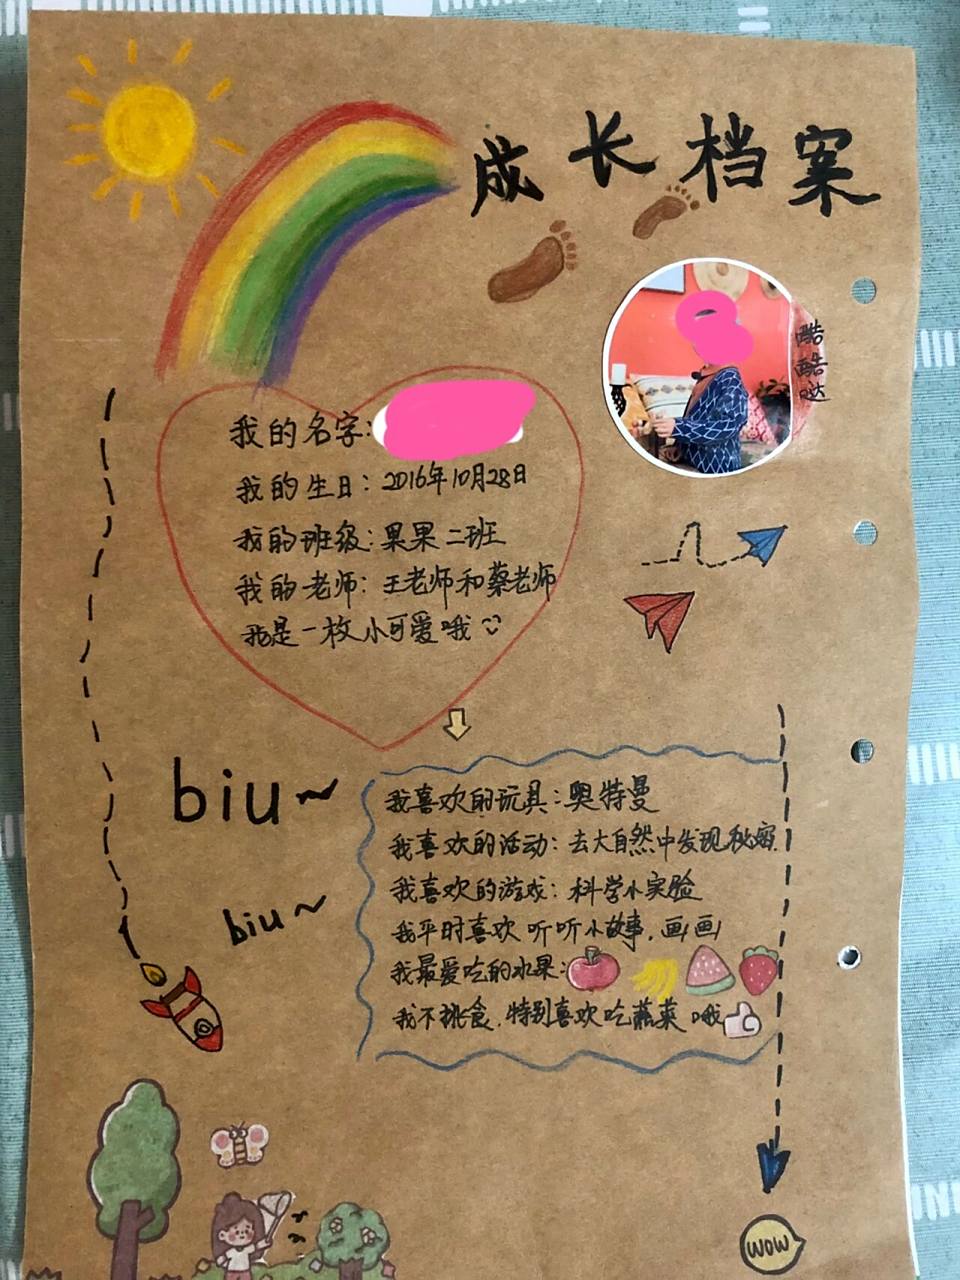 成长档案
酷
酷
哒
我的名字:
我的生日：2016年10月28日
我的班级：果果二班
我的老师：王老师和蔡老师
我是一枚小可爱哦
biu~
biu~
我喜欢的玩具：奥特曼
我喜欢的活动：去大自然中发现秘密.
我喜欢的游戏：科学小实验
我平时喜欢听听小故事.画画
我最爱吃的水果:
我不挑食.特别喜欢吃蔬菜哦
WOW